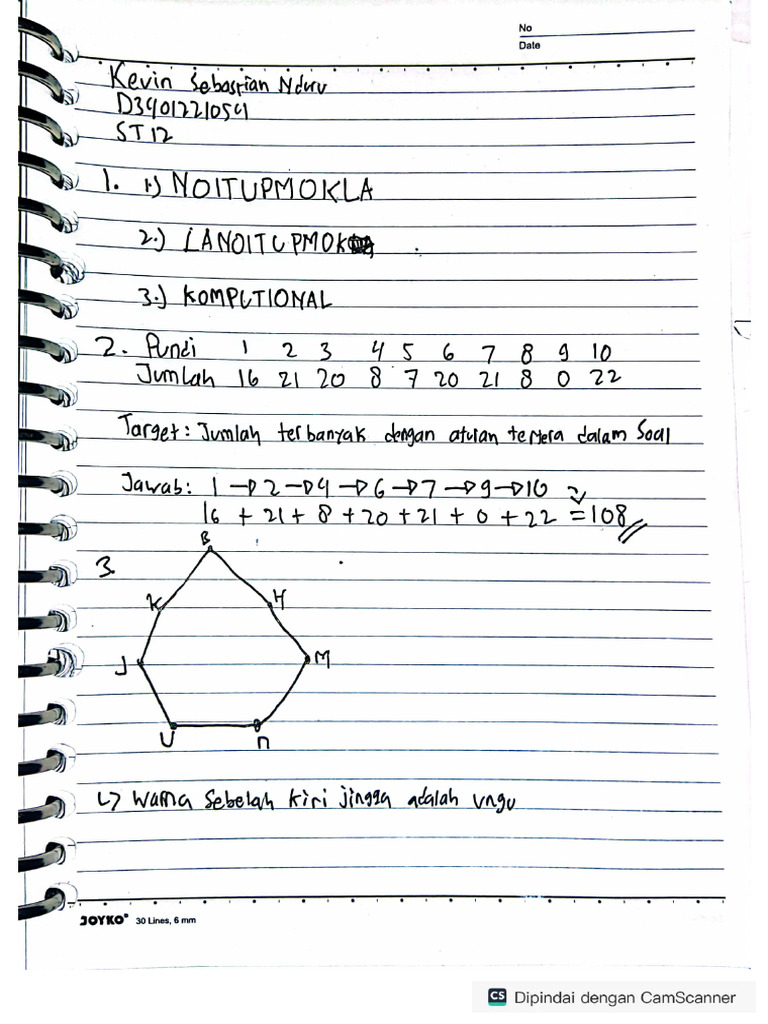 No
Date
Kevin Sebastian Nduru
D3401221054
ST 12
1. 1.) NOITUPMOKLA
2.) LANOITUPMOK
3.) KOMPUTIONAL
2. Pundi 1 2 3 4 5 6 7 8 9 10
Jumlah 16 21 20 8 7 20 21 8 0 22
Target: Jumlah terbanyak dengan aturan tertera dalam Soal
Jawab: 1 → 2 → 4 → 6 → 7 → 9 → 10
16 + 21 + 8 + 20 + 21 + 0 + 22 = 108
3.
B
K H
J M
U n
↳ Warna Sebelah kiri jingga adalah ungu
JOYKO® 30 Lines, 6 mm
CS Dipindai dengan CamScanner